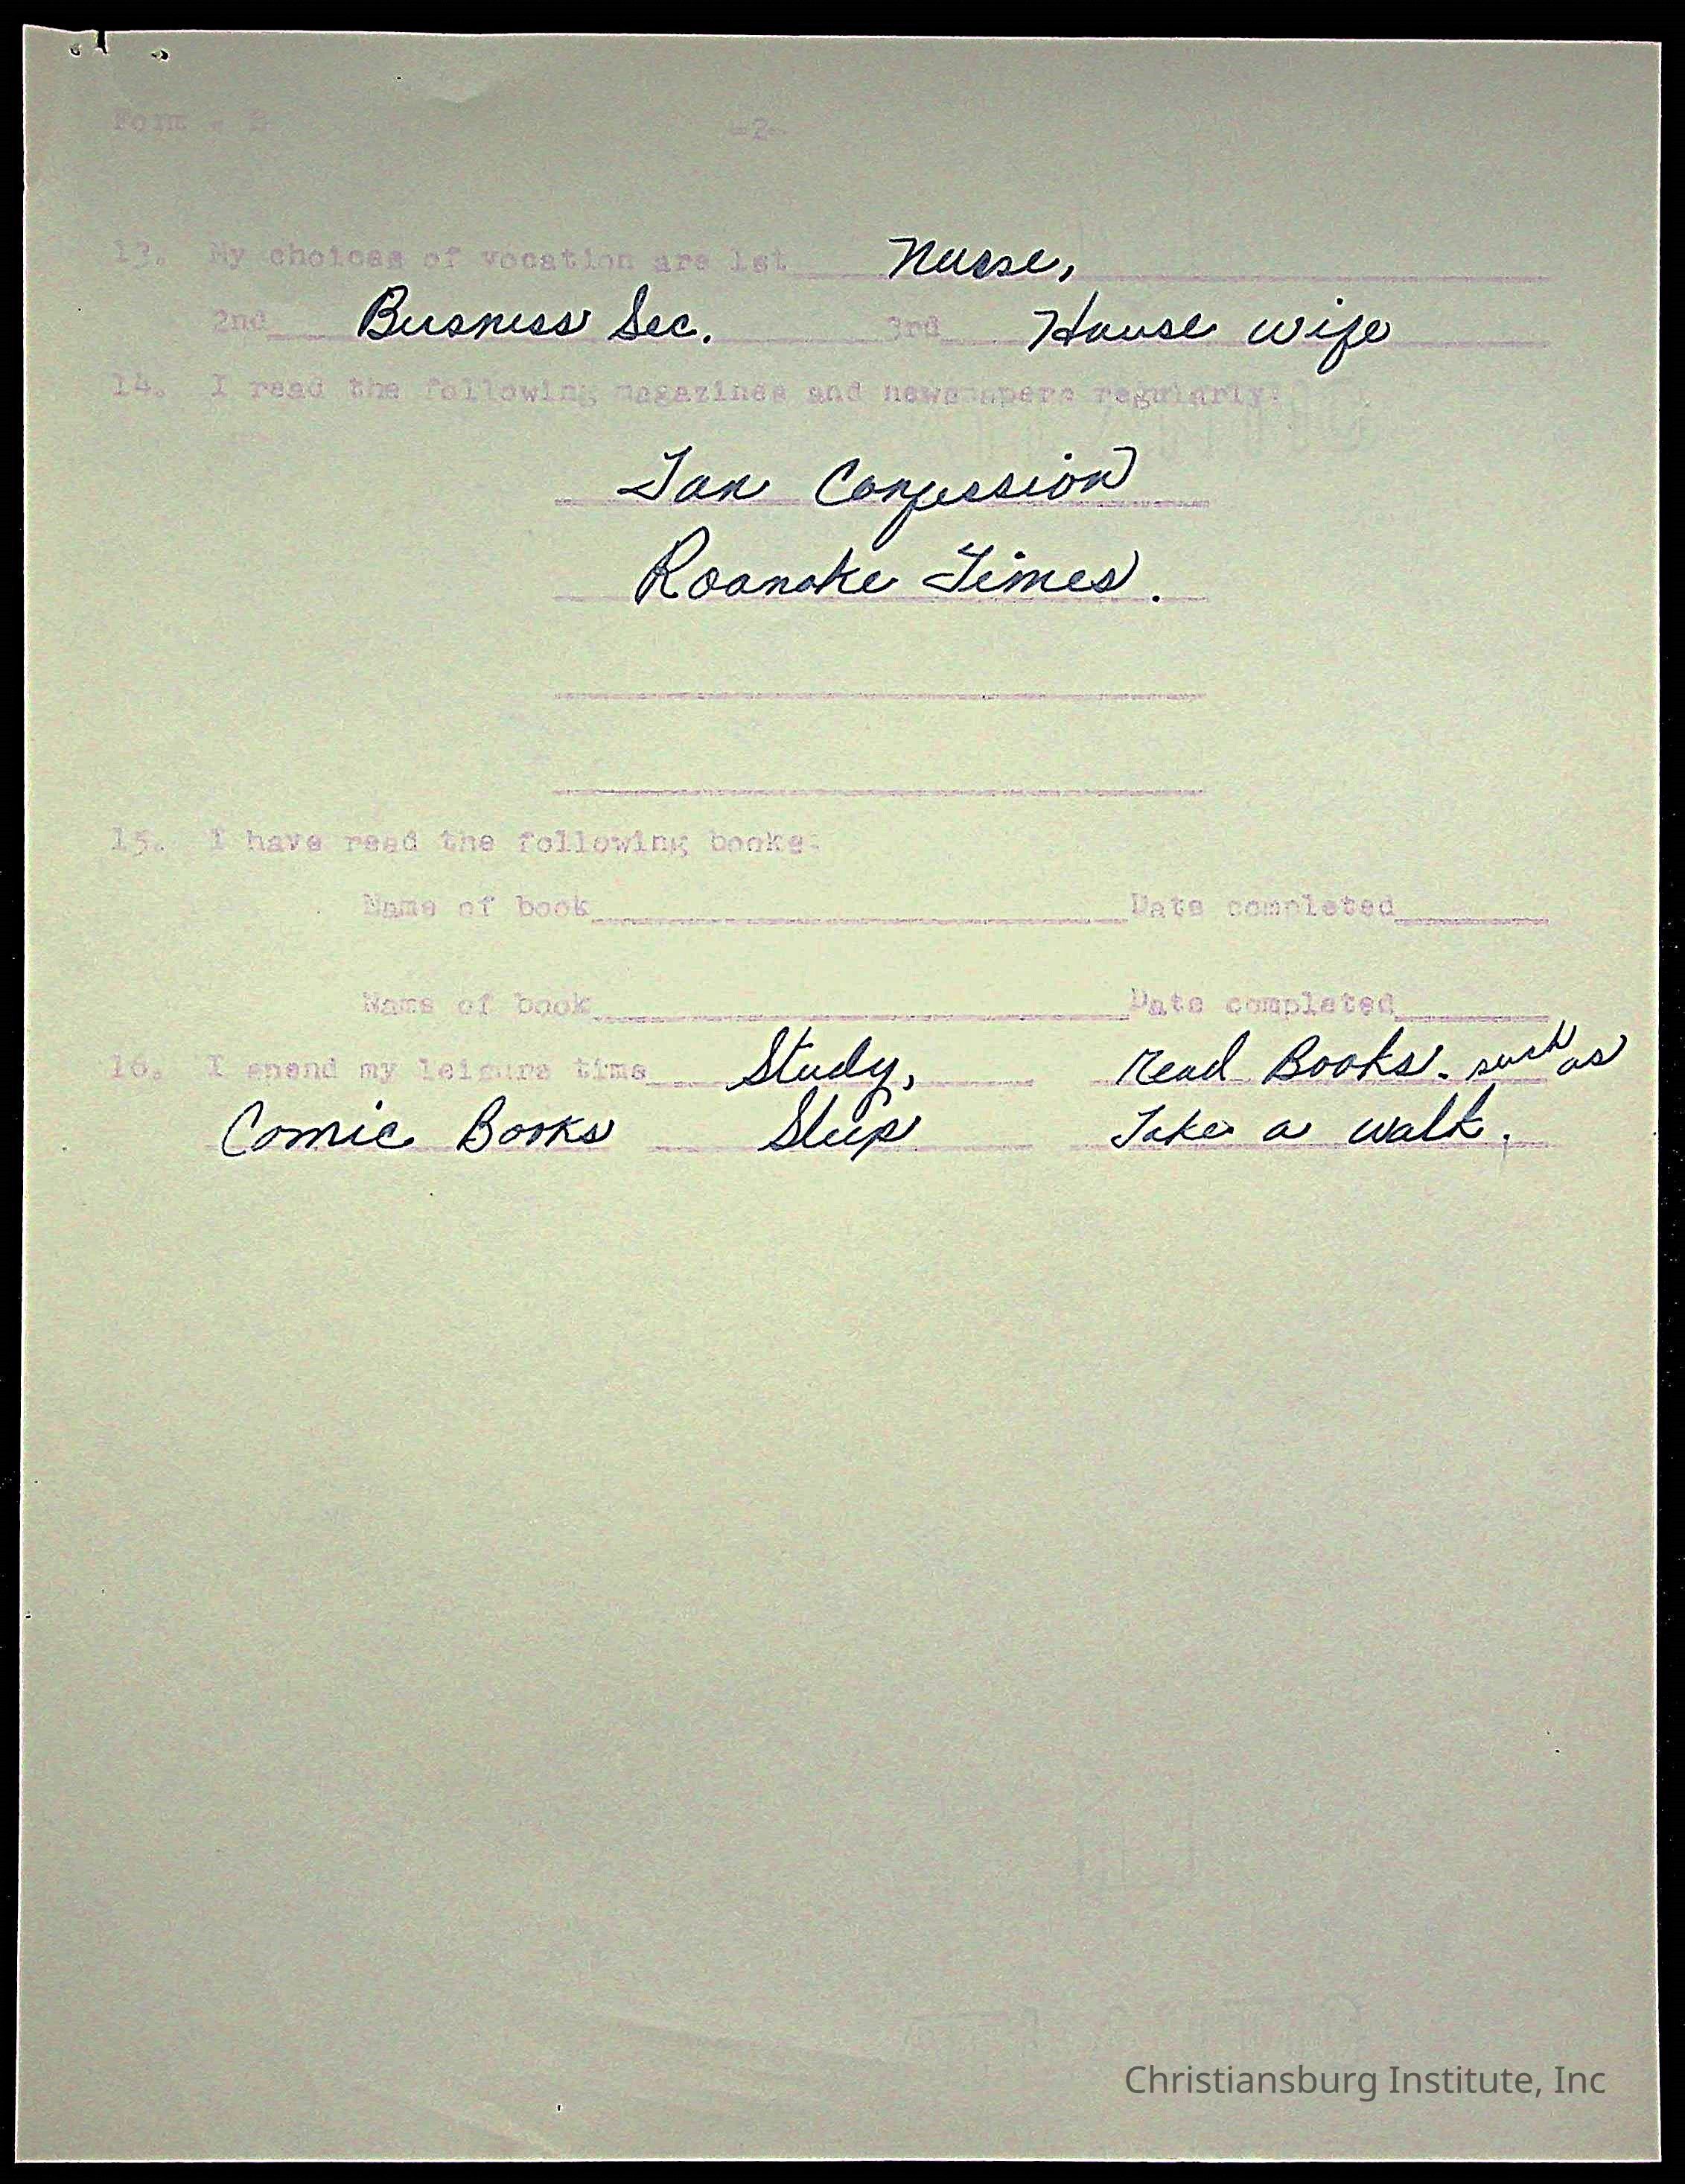 Form - B -2-
13. My choices of vocation are 1st Nurse,
2nd Busness Sec. 3rd House wife
14. I read the following magazines and newspapers regularly:
Tan Confession
Roanoke Times.
15. I have read the following books:
Name of book Date completed
Name of book Date completed
16. I spend my leisure time Study, Read Books. such as
Comic Books Sleep Take a walk.
Christiansburg Institute, Inc